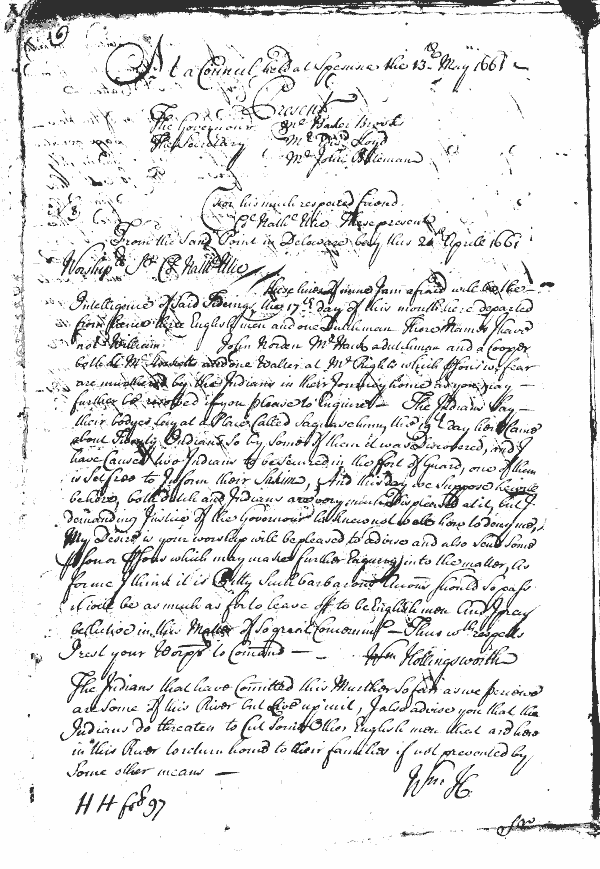 At a Councell held at Spesutie the 13th May 1661
Present
The Governour Mr Baker Brooke
The Secretary Mr Lloyd
Mr John Bateman
For his much respected friend
Col Nathl Utie These present
From the Sand Point in Deloware bay this Aprile 1661
Worshipll Sr Col Nathll Utie
These lines of mine I am afraid will be the
Intelligence of Said Tideing, the 17th day of this month there departed
from hence three English men and one Dutchman there names I have
not William John Norden Mr Hack a dutchman and a Cooper
both at Mr and one Walter at Mr Rights which persons we fear
are murthered by the Indians in their Journey home as you may
further be resolved if you please to Enquire The Indians Say
their bodyes lay at a Place Called the day here Came
about Indians so by Some of them it was discovered, and I
have Caused two Indians to be secured in the Fort of Guard, one of them
is let free to Inform their and this day we suppose
before, both dutch and Indians are very much displeased at it, but I
demanding Justice of the Governour he knew not well how to deny me,
My Desire is your worship will be pleased to advise and also send some
person or persons which may make further Enquiry into the matter, As
for me I think it is Pitty Such barbarous Accons should so pass
it will be as much as for to leave off to be English men And I pray
be Active in this Matter of so great Concernmt Thus wth respects
I rest your Worpps to Comand Wm Hollingsworth
The Indians that have Comitted this Murther so far as we perceive
are some of this River but live up in it, I also advise you that the
Indians do threaten to Cut Some other English men that are here
in this River to return home to their families if not prevented by
Some other means
Wm H
H H fo 97